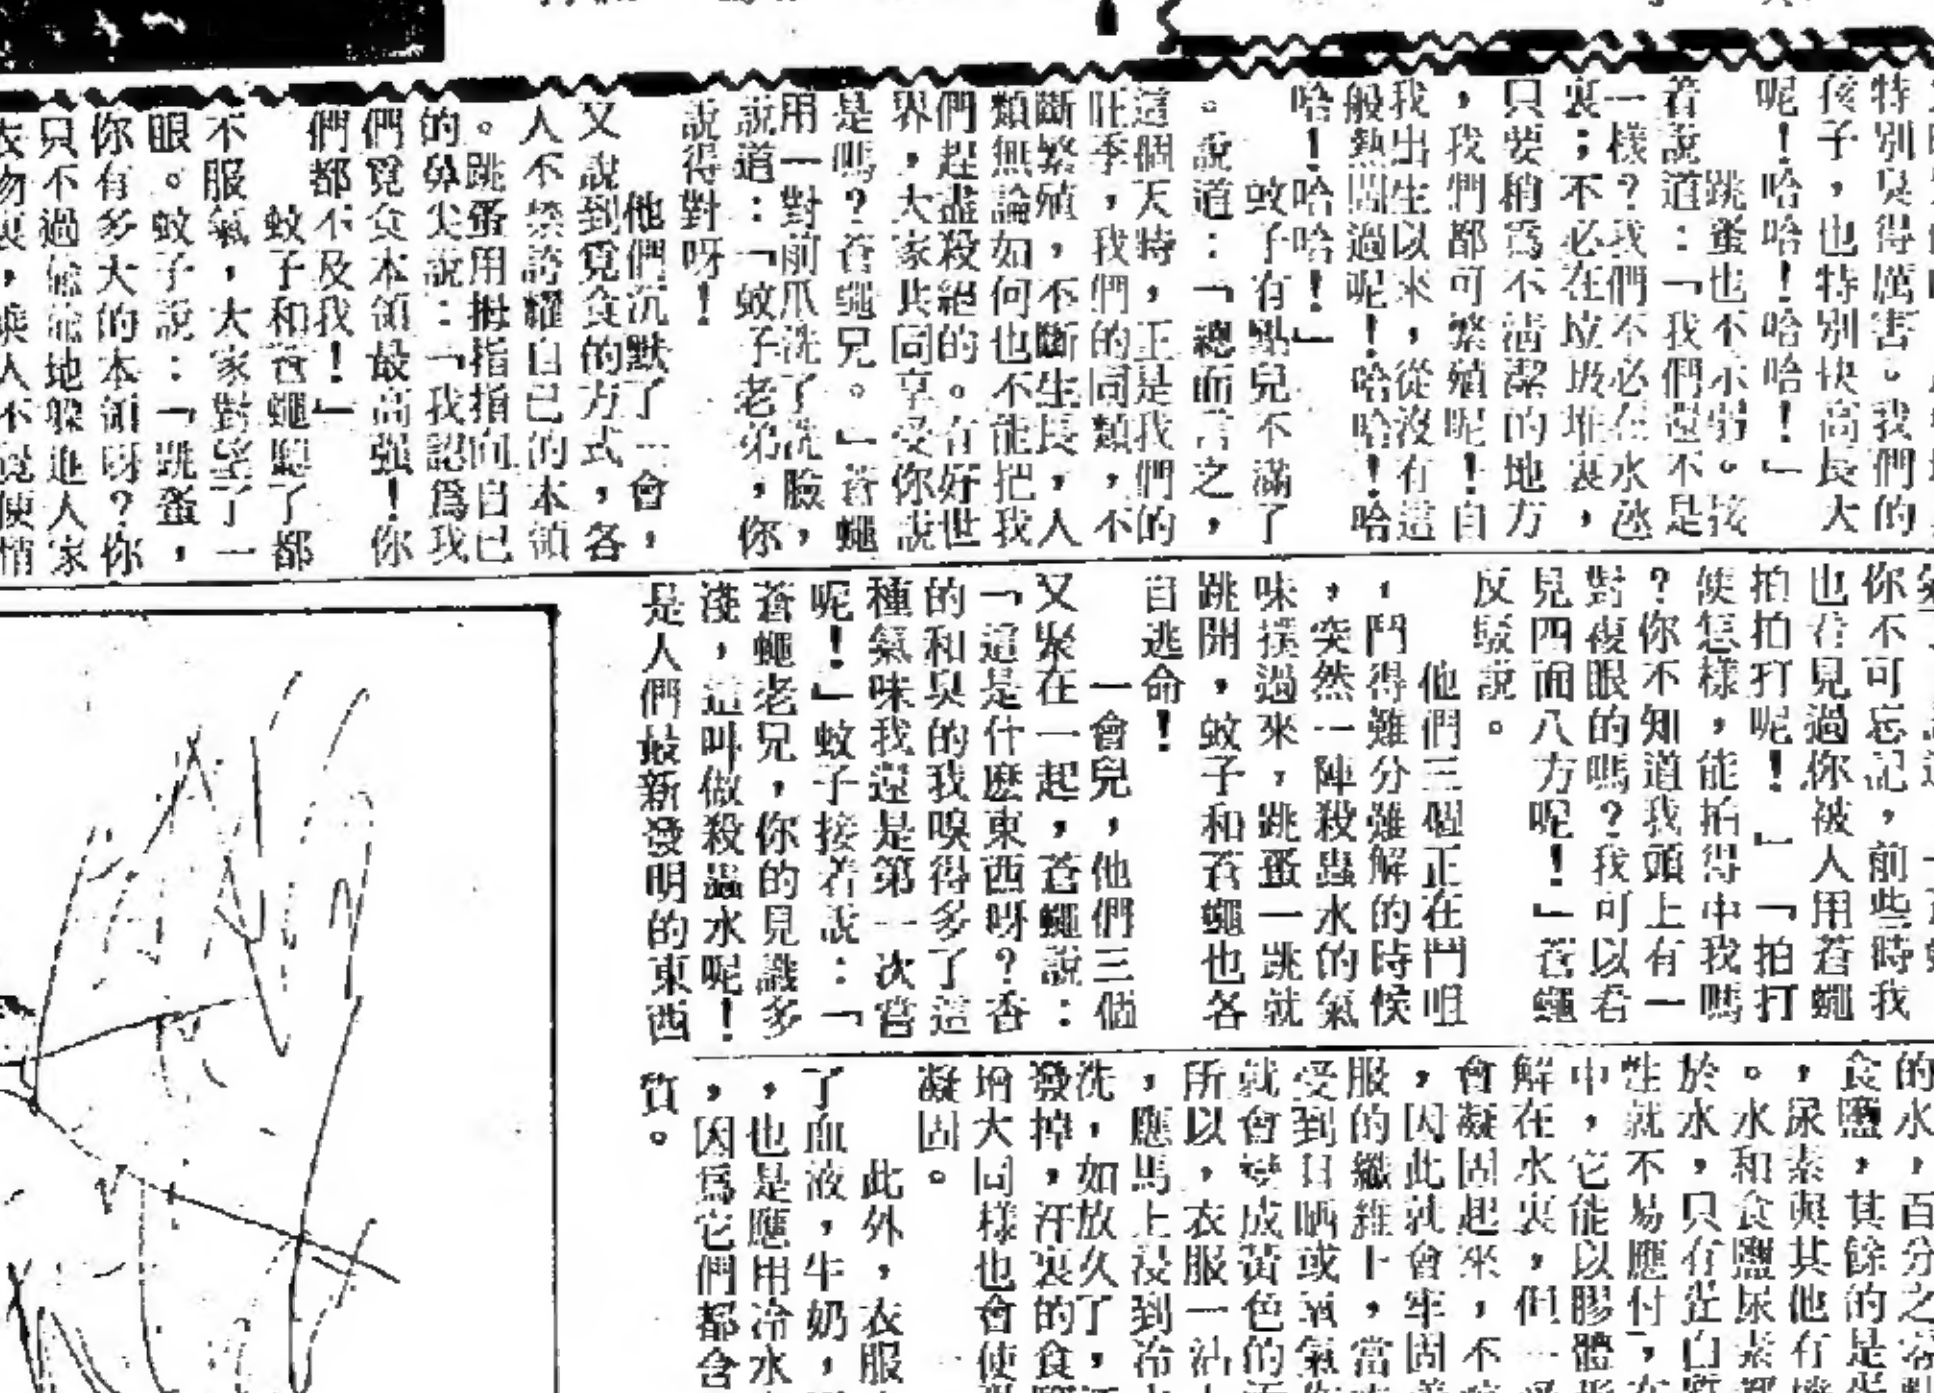 特別臭得厲害。我們的
孩子，也特別快高長大
呢！哈哈！哈哈！」
跳蚤也不示弱。接
着說道：「我們還不是
一樣？我們不必在水氹
裏；不必在垃圾堆裏，
只要稍爲不清潔的地方
，我們都可繁殖呢！自
我出生以來，從沒有這
般熱鬧過呢！哈哈！哈
哈！哈哈！」
蚊子有點兒不滿了
。說道：「總而言之，
這個天時，正是我們的
旺季，我們的同類，不
斷繁殖，不斷生長，人
類無論如何也不能把我
們趕盡殺絕的。有好世
界，大家共同享受你說
是嗎？蒼蠅兄。」蒼蠅
用一對前爪洗了洗臉，
說道：「蚊子老弟，你
說得對呀！
他們沉默了一會，
又說到覓食的方式，各
人不禁誇耀自己的本領
。跳蚤用拇指指向自己
的鼻尖說：「我認爲我
們覓食本領最高強！你
們都不及我！」
蚊子和蒼蠅聽了都
不服氣，大家對望了一
眼。蚊子說：「跳蚤，
你有多大的本領呀？你
只不過偷偷地躲進人家
衣物裏，乘人不覺便悄
你不可忘記，前些時我
也看見過你被人用蒼蠅
拍拍打呢！」「拍打
便怎樣，能拍得中我嗎
？你不知道我頭上有一
對複眼的嗎？我可以看
見四面八方呢！」蒼蠅
反駁說。
他們三個正在鬥咀
，鬥得難分難解的時候
，突然一陣殺蟲水的氣
味撲過來，跳蚤一跳就
跳開，蚊子和蒼蠅也各
自逃命！
一會兒，他們三個
又聚在一起，蒼蠅說：
「這是什麽東西呀？香
的和臭的我嗅得多了這
種氣味我還是第一次嘗
呢！」蚊子接着說：「
蒼蠅老兄，你的見識多
淺，這叫做殺蟲水呢！
是人們最新發明的東西
的水，百分之零
食鹽，其餘的是
，尿素與其他有
。水和食鹽尿素都
於水，只有蛋白質
生就不易應付，
中，它能以膠體
解在水裏，但一
會凝固起來，不
，因此就會牢固
服的纖維上，當
受到日晒或氧氣
就會變成黃色的
所以，衣服一沾
，應馬上浸到冷
洗，如放久了，
發掉，汗裏的食鹽
增大同樣也會使
凝固。
此外，衣服
了血液，牛奶，
，也是應用冷水
，因爲它們都含
質。